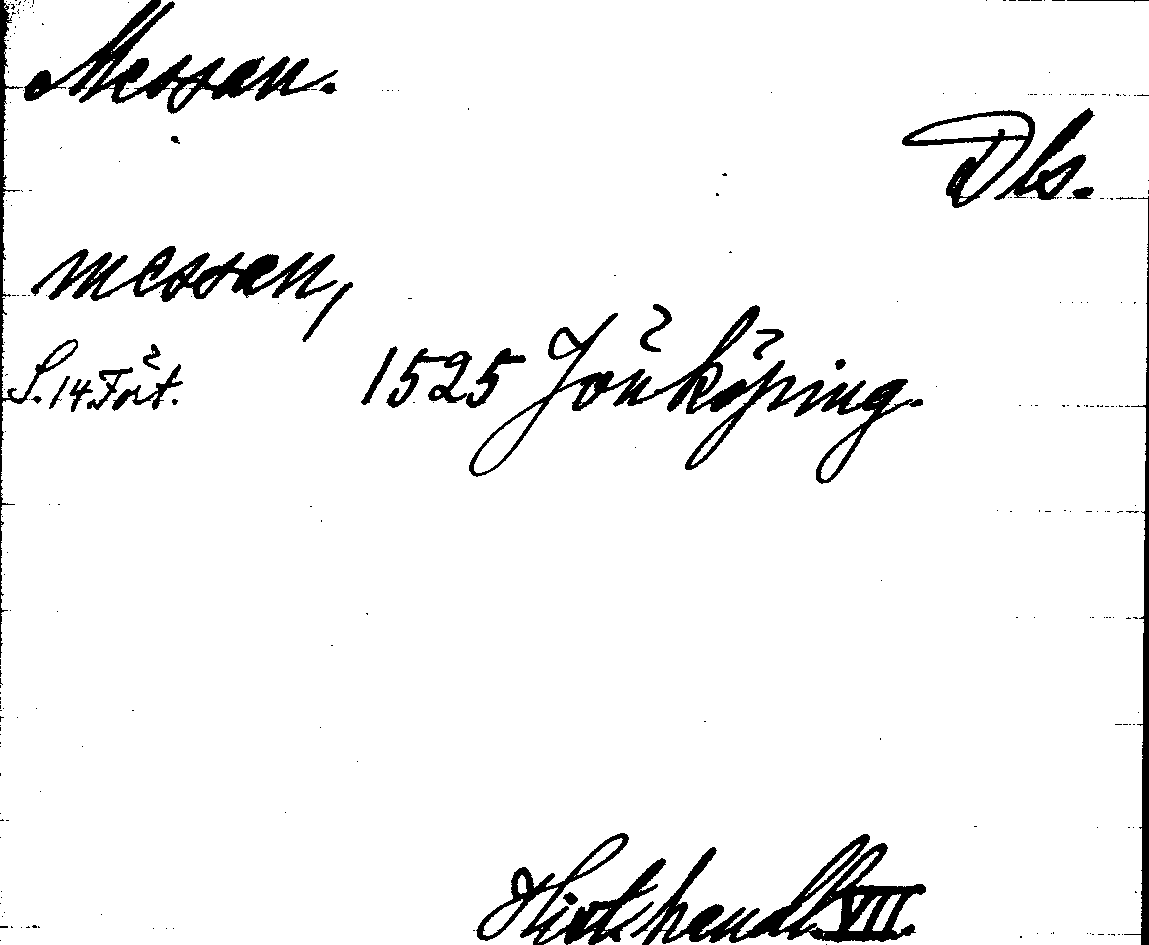 Messan.
Dls.
messan,
S. 14 Fört.
1525 Jönköping.
Hist. handl. VII.